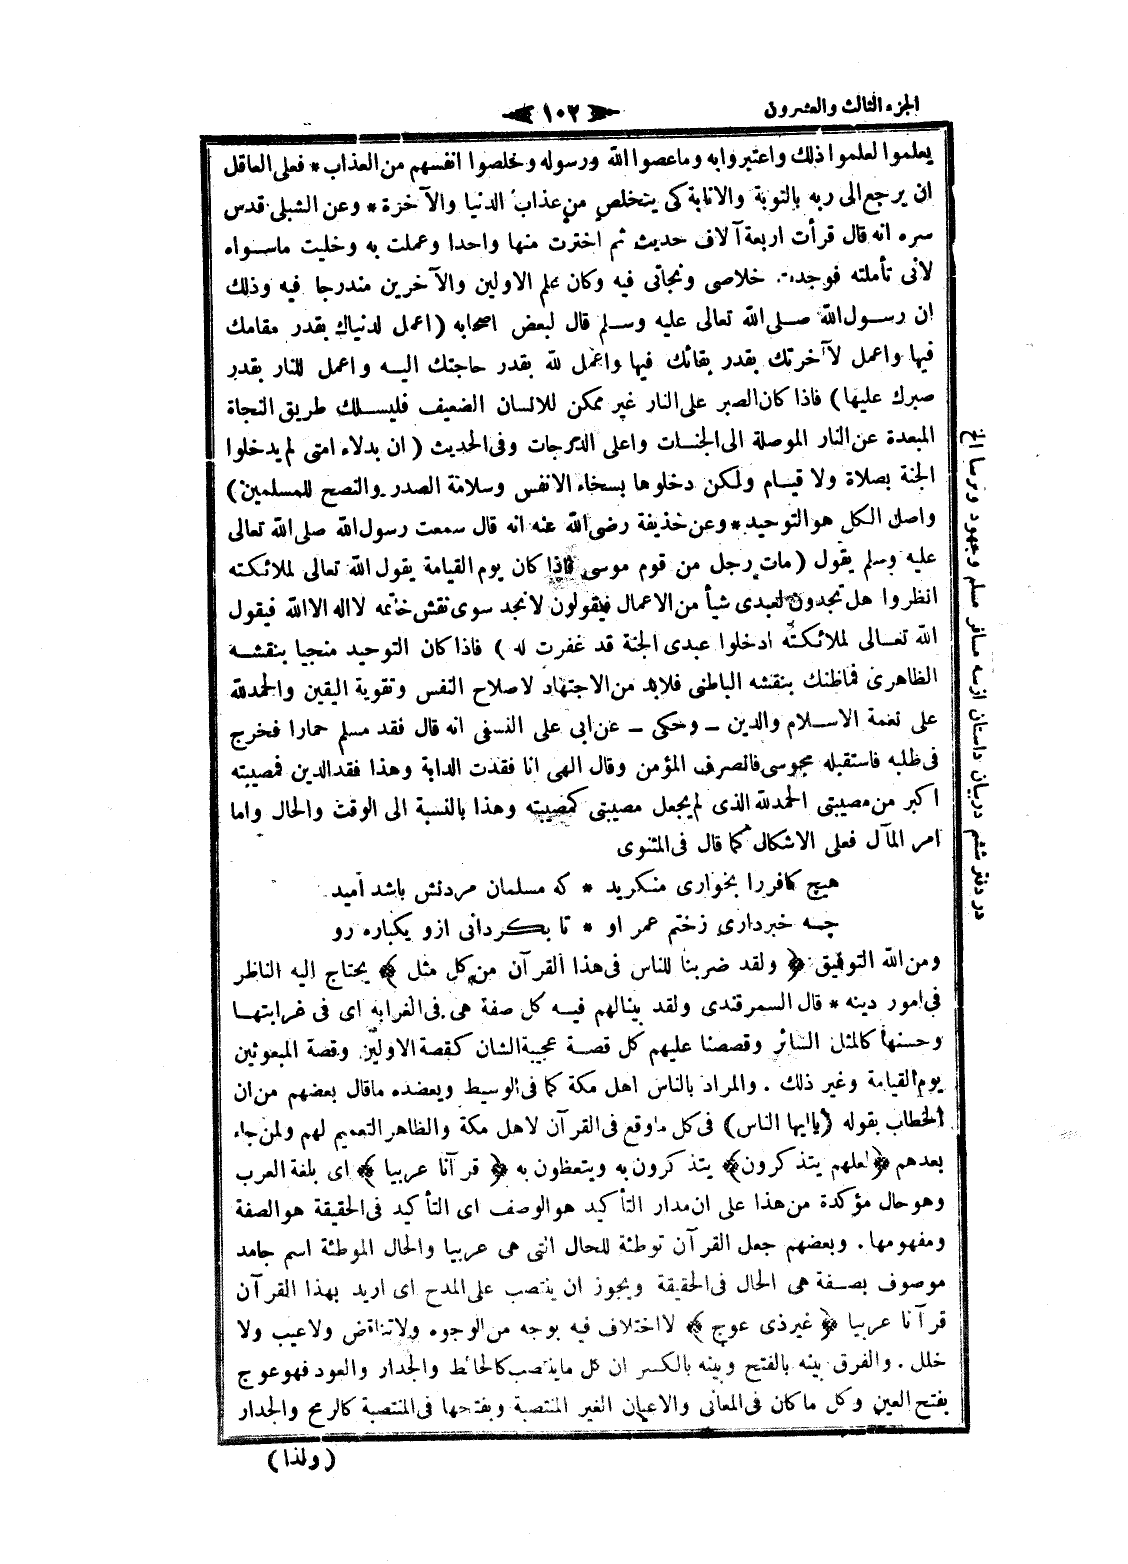 الجزء الثالث والعشرون
١٠٢
يعلموا لعلموا ذلك واعتبروا به وما عصوا الله ورسوله وخلصوا انفسهم من العذاب * فعلى العاقل
ان يرجع الى ربه بالتوبة والانابة كى يتخلص من عذاب الدنيا والآخرة * وعن الشبلى قدس
سره انه قال قرأت اربعة آلاف حديث ثم اخترت منها واحدا وعملت به وخليت ماسواه
لانى تأملته فوجدت خلاصى ونجاتى فيه وكان علم الاولين والآخرين مندرجا فيه وذلك
ان رسول الله صلى الله تعالى عليه وسلم قال لبعض اصحابه (اعمل لدنياك بقدر مقامك
فيها واعمل لآخرتك بقدر بقائك فيها واعمل لله بقدر حاجتك اليه واعمل للنار بقدر
صبرك عليها) فاذا كان الصبر على النار غير ممكن للانسان الضعيف فليسلك طريق النجاة
المبعدة عن النار الموصلة الى الجنات واعلى الدرجات وفى الحديث (ان بدلاء امتى لم يدخلوا
الجنة بصلاة ولا قيام ولكن دخلوها بسخاء الانفس وسلامة الصدر والنصح للمسلمين)
واصل الكل هو التوحيد * وعن خذيفة رضى الله عنه انه قال سمعت رسول الله صلى الله تعالى
عليه وسلم يقول (مات رجل من قوم موسى فاذا كان يوم القيامة يقول الله تعالى لملائكته
انظروا هل تجدون لعبدى شيأ من الاعمال فيقولون لا نجد سوى نقش خاتمه لا اله الا الله فيقول
الله تعالى لملائكته ادخلوا عبدى الجنة قد غفرت له) فاذا كان التوحيد منجيا بنقشه
الظاهرى فماظنك بنقشه الباطنى فلابد من الاجتهاد لاصلاح النفس وتقوية اليقين والحمدلله
على نعمة الاسلام والدين ـ وحكى ـ عن ابى على النسفى انه قال فقد مسلم حمارا فخرج
فى طلبه فاستقبله مجوسى فانصرف المؤمن وقال الهى انا فقدت الدابة وهذا فقد الدين فمصيبته
اكبر من مصيبتى الحمدلله الذى لم يجعل مصيبتى كمصيبته وهذا بالنسبة الى الوقت والحال واما
امر المآل فعلى الاشكال كما قال فى المثنوى
هيچ كافررا بخوارى منكريد * كه مسلمان مردنش باشد اميد
چه خبردارى زختم عمر او * تا بكردانى ازو يكباره رو
ومن الله التوفيق ﴿ ولقد ضربنا للناس فى هذا القرآن من كل مثل ﴾ يحتاج اليه الناظر
فى امور دينه * قال السمرقندى ولقد بينالهم فيه كل صفة هى فى الغرابة اى فى غرابتها
وحسنها كالمثل السائر وقصصنا عليهم كل قصة عجيبة الشان كقصة الاولين وقصة المبعوثين
يوم القيامة وغير ذلك . والمراد بالناس اهل مكة كما فى الوسيط ويعضده ماقال بعضهم من ان
الخطاب بقوله (ياايها الناس) فى كل ماوقع فى القرآن لاهل مكة والظاهر التعميم لهم ولمن جاء
بعدهم ﴿لعلهم يتذكرون﴾ يتذكرون به ويتعظون به ﴿ قرآنا عربيا ﴾ اى بلغة العرب
وهو حال مؤكدة من هذا على ان مدار التأكيد هو الوصف اى التأكيد فى الحقيقة هو الصفة
ومفهومها . وبعضهم جعل القرآن توطئة للحال التى هى عربيا والحال الموطئة اسم جامد
موصوف بصفة هى الحال فى الحقيقة ويجوز ان ينتصب على المدح اى اريد بهذا القرآن
قرآنا عربيا ﴿ غير ذى عوج ﴾ لااختلاف فيه بوجه من الوجوه ولاتناقض ولاعيب ولا
خلل . والفرق بينه بالفتح وبينه بالكسر ان كل ماينتصب كالحائط والجدار والعود فهو عوج
بفتح العين وكل ماكان فى المعانى والاعيان الغير المنتصبة وبفتحها فى المنتصبة كالرمح والجدار
(ولذا)
در دفتر ششم دربيان داستان ازسه مسافر مسلم وجهود وترسا الخ